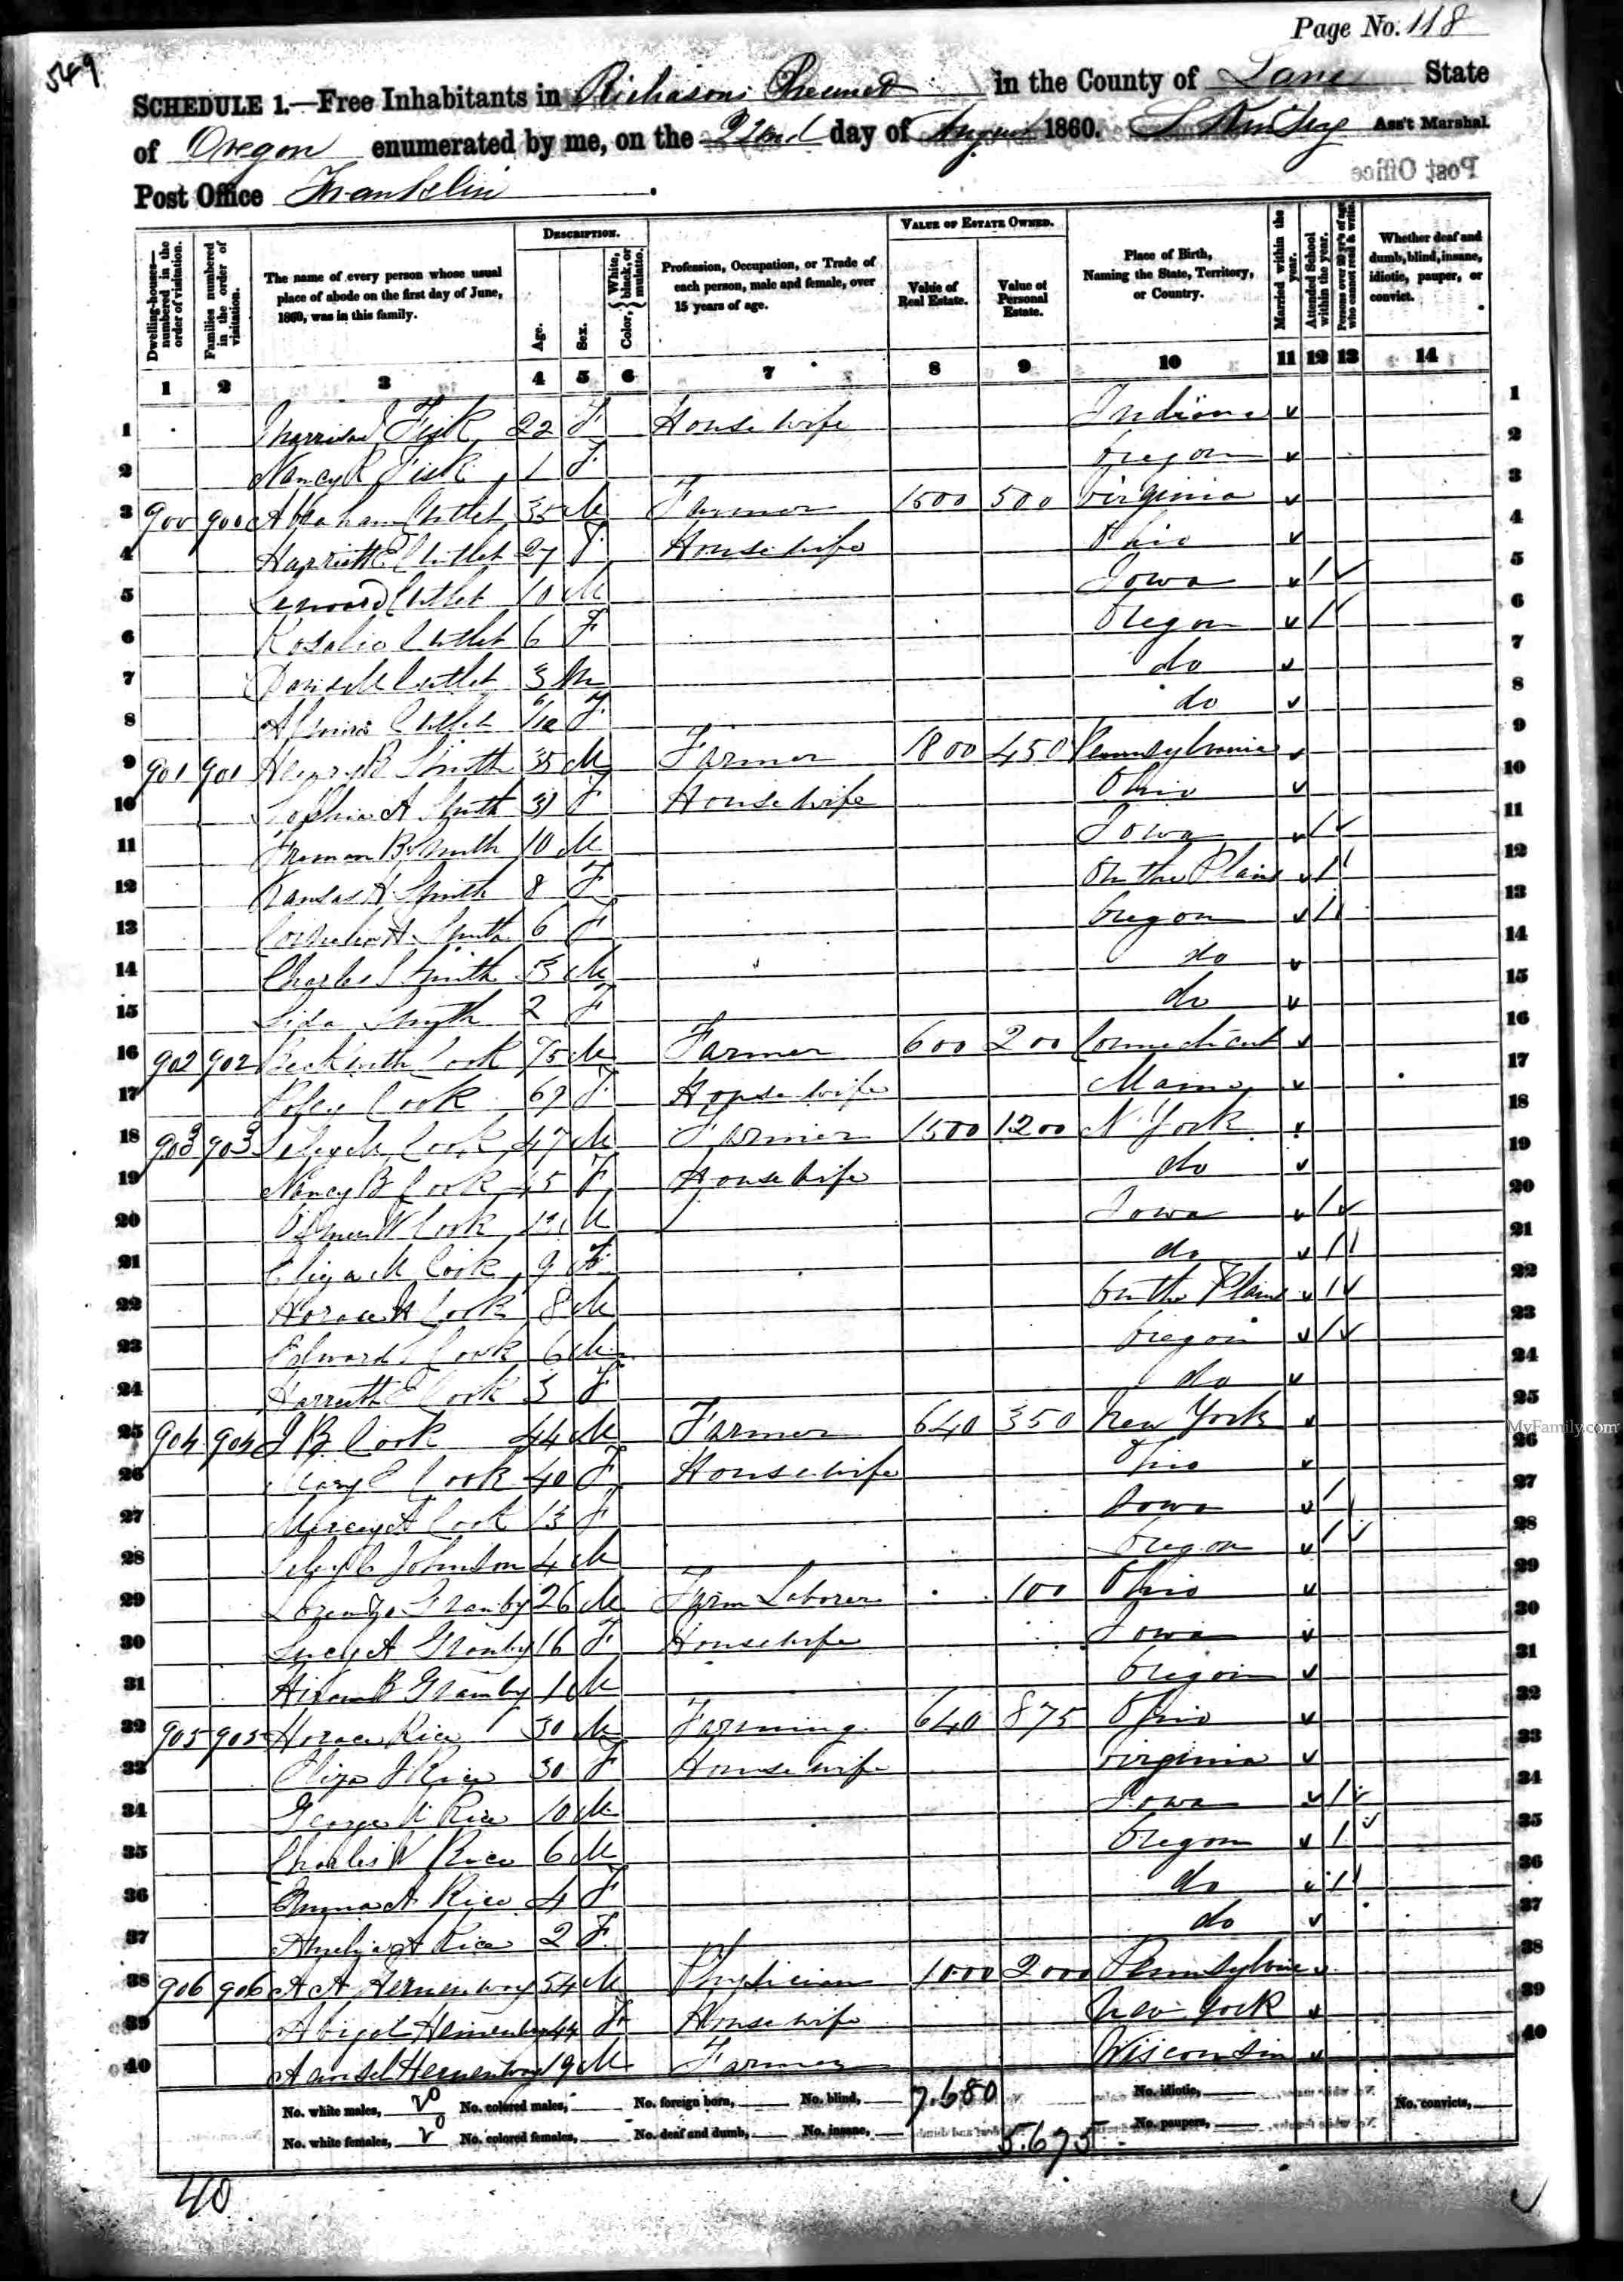 Page No. 118
549
SCHEDULE 1.—Free Inhabitants in Richasons Precinct in the County of Lane State
of Oregon enumerated by me, on the 22nd day of August 1860. Ass't Marshal
Post Office Franklin
Post Office
DESCRIPTION. VALUE OF ESTATE OWNED.
Dwelling-houses—numbered in the order of visitation. Families numbered in the order of visitation. The name of every person whose usual place of abode on the first day of June, 1860, was in this family. Age. Sex. Color, { White, black, or mulatto. Profession, Occupation, or Trade of each person, male and female, over 15 years of age. Value of Real Estate. Value of Personal Estate. Place of Birth, Naming the State, Territory, or Country. Married within the year. Attended School within the year. Persons over 20 y'rs of age who cannot read & write. Whether deaf and dumb, blind, insane, idiotic, pauper, or convict.
1 2 3 4 5 6 7 8 9 10 11 12 13 14
1 Fisk 22 F House wife Indiana 1
2 Nancy R Fisk 1 F Oregon 2
3 900 900 Abraham Cutlet 35 M Farmer 1500 500 Virginia 3
4 Harriett E Cutlet 27 F House wife Ohio 4
5 Cutlet 10 M Iowa 1 5
6 Rosalie Cutlet 6 F Oregon 1 6
7 Cutlet 3 M do 7
8 Cutlet F do 8
9 901 901 Henry B Smith 35 M Farmer 1800 450 Pennsylvania 9
10 Sophia A Smith 31 F House wife Ohio 10
11 B Smith 10 M Iowa 1 11
12 Kansas H Smith 8 F On the Plains 1 12
13 Cornelia A Smith 6 F Oregon 1 13
14 Charles S Smith M do 14
15 Smith 2 F do 15
16 902 902 Beckwith Cook 75 M Farmer 600 200 Connecticut 16
17 Cook 67 F House wife Maine 17
18 903 903 Cook 47 M Farmer 1500 1200 N York 18
19 Nancy B Cook 45 F House wife do 19
20 W Cook M Iowa 1 20
21 Eliza M Cook 9 F do 1 21
22 Horace H Cook 8 M On the Plains 1 22
23 Edward S Cook 6 M Oregon 1 23
24 Harriett E Cook 3 F do 24
25 904 904 J B Cook 44 M Farmer 640 350 New York 25
26 Mary E Cook 40 F House wife Ohio 26
27 Mercy A Cook 13 F Iowa 1 27
28 Johnson 4 M Oregon 1 28
29 Lorenzo Granby 26 M Farm Laborer 100 Ohio 29
30 Lucy A Granby 16 F House wife Iowa 30
31 Hiram B Granby 1 M Oregon 31
32 905 905 Horace Rice 30 M Farming 640 875 Ohio 32
33 Eliza J Rice 30 F House wife Virginia 33
34 George Rice 10 M Iowa 1 34
35 Charles W Rice 6 M Oregon 1 35
36 Emma A Rice 4 F do 1 36
37 Rice 2 F do 37
38 906 906 A A Hemenway 54 M Physician 1000 2000 Pennsylvania 38
39 Abigal Hemenway 44 F House wife New York 39
40 Ansel Hemenway 19 M Farmer Wisconsin 40
No. white males, 20 No. colored males, No. foreign born, No. blind, 7.680 No. idiotic, No. convicts,
No. white females, 20 No. colored females, No. deaf and dumb, No. insane, 5.675 No. paupers,
40
MyFamily.com